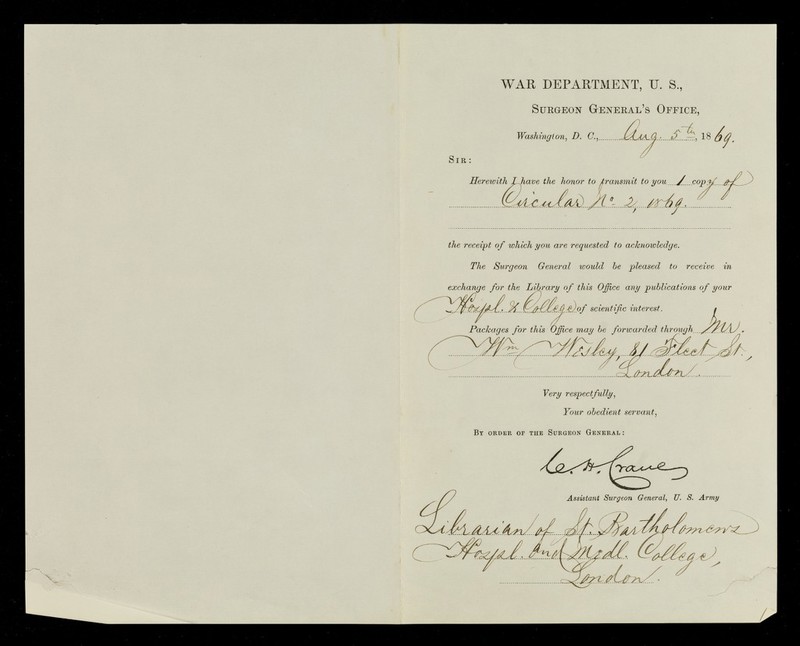 WAR DEPARTMENT, U. S.,
SURGEON GENERAL'S OFFICE,
Washington, D. C., Aug. 5th, 1869.
SIR:
Herewith I have the honor to transmit to you 1 copy of
Circular No. 2, 1869.
the receipt of which you are requested to acknowledge.
The Surgeon General would be pleased to receive in
exchange for the Library of this Office any publications of your
Hospl. & College of scientific interest.
Packages for this Office may be forwarded through Mr.
Wm Wesley, 81 Fleet St.,
London.
Very respectfully,
Your obedient servant,
BY ORDER OF THE SURGEON GENERAL:
C. H. Crane
Assistant Surgeon General, U. S. Army
Librarian of St. Bartholomews
Hospl. and Medl. College,
London.